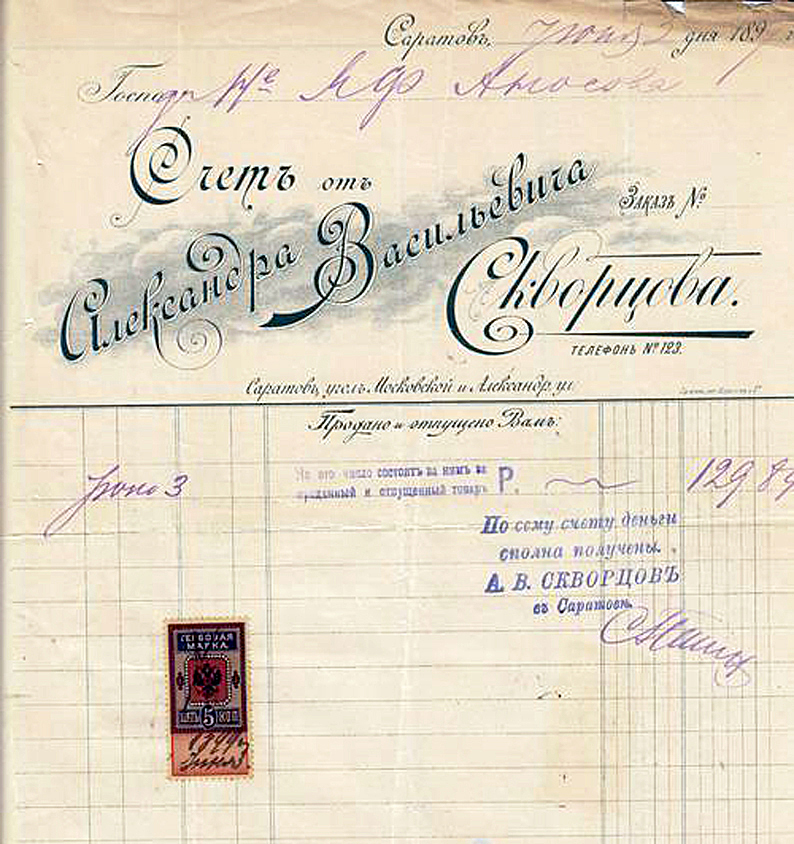 Саратовъ, Июня 3 дня 189 г
Господ
Счетъ отъ
Александра Васильевича
Заказъ №
Скворцова.
ТЕЛЕФОНЪ № 123.
Саратовъ, уголъ Московской и Александр. ул
Продано и отпущено Вамъ:
Июня 3
На это число состоитъ за нимъ за
проданный и отпущенный товаръ Р. 129 89
По сему счету деньги
сполна получены.
А. В. СКВОРЦОВЪ
въ Саратовѣ.
ГЕРБОВАЯ
МАРКА
ЦѢНА 5 КОП